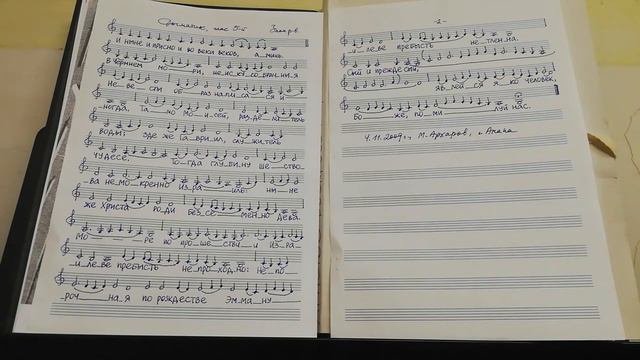 Догматик, глас 5-й
И ныне и присно и во веки веков, а_минь.
В Чермнем мо_ри, неискусобрачныя
Не_ве_сты об_раз на_пи_са_ся и_
ногда. Та_мо Мои_сей, раз_де_ли_тель
воды: зде же Гавриил, слу_житель
чудесе. То_гда глу_би_ну ше_ство_
ва не_мо_кренно Изра_иль: ны_не
же Христа ро_ди без_се_мен_но Дева.
Мо_ре по про_ше_стви_и Из_ра_
_и_ле_ве пребысть не_про_ход_но: не_по_
_роч_на_я по рождестве Эм_ма_ну_
-2-
_и_ле_ве пребысть не_тлен_на.
Сый и преждесый,
яв_лей_ся я_ко человек,
Бо_же, по_ми_луй нас.
4.11.2009 г., М. Архаров, г. Анапа